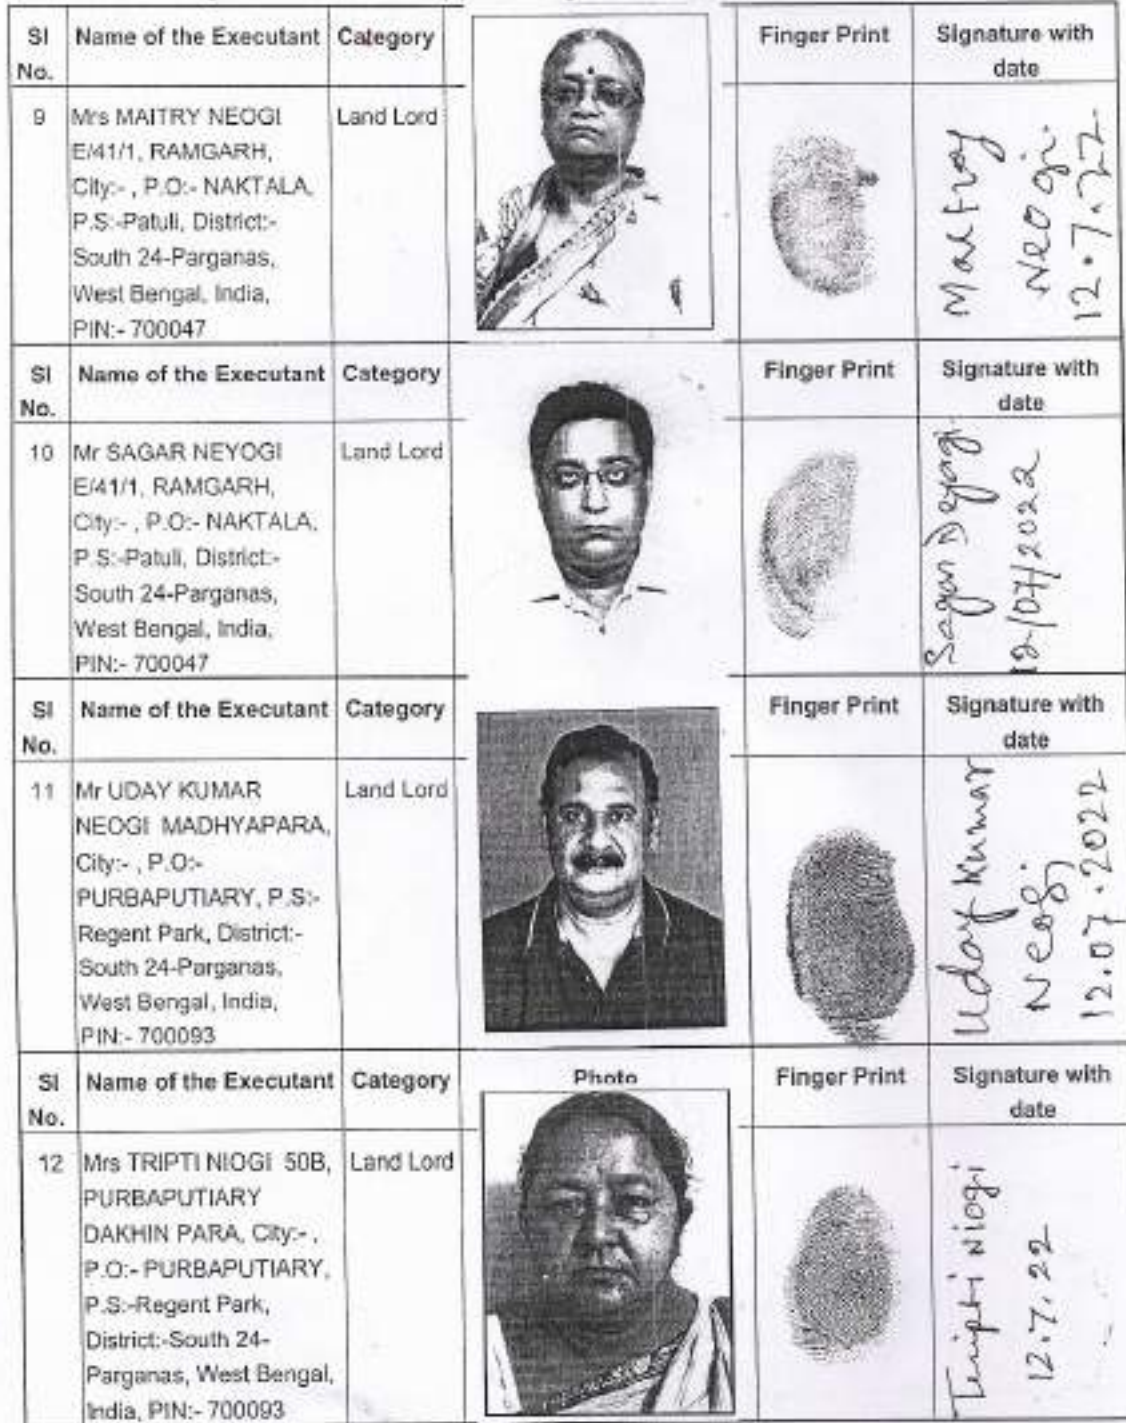 Sl No. Name of the Executant Category Finger Print Signature with date
9 Mrs MAITRY NEOGI Land Lord
E/41/1, RAMGARH,
City:- , P.O:- NAKTALA,
P.S:-Patuli, District:-
South 24-Parganas,
West Bengal, India,
PIN:- 700047
Neogi
12.7.22
Sl No. Name of the Executant Category Finger Print Signature with date
10 Mr SAGAR NEYOGI Land Lord
E/41/1, RAMGARH,
City:- , P.O:- NAKTALA,
P.S:-Patuli, District:-
South 24-Parganas,
West Bengal, India,
PIN:- 700047
Sagar
12/07/2022
Sl No. Name of the Executant Category Finger Print Signature with date
11 Mr UDAY KUMAR Land Lord
NEOGI MADHYAPARA,
City:- , P.O:-
PURBAPUTIARY, P.S:-
Regent Park, District:-
South 24-Parganas,
West Bengal, India,
PIN:- 700093
Uday Kumar
Neogi
12.07.2022
Sl No. Name of the Executant Category Photo Finger Print Signature with date
12 Mrs TRIPTI NIOGI 50B, Land Lord
PURBAPUTIARY
DAKHIN PARA, City:- ,
P.O:- PURBAPUTIARY,
P.S:-Regent Park,
District:-South 24-
Parganas, West Bengal,
India, PIN:- 700093
Tripti Niogi
12.7.22